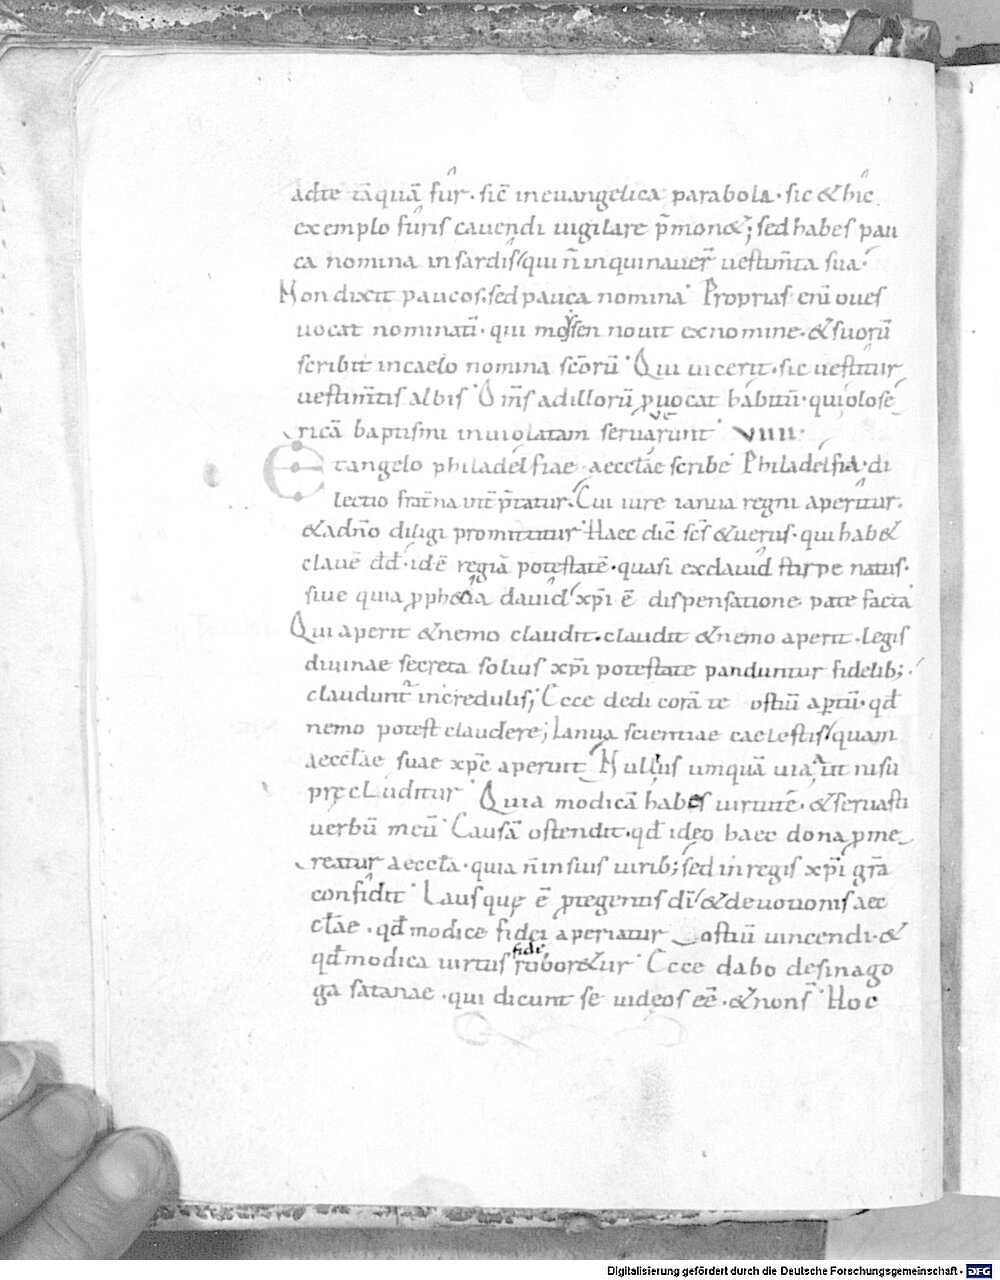 adte tāquā fur. sic̄ ineuangelica parabola. sic & hic
exemplo furis cauendi uigilare p̄mon&; sed habes pau
ca nomina insardis qui n̄ inquinauer̄ uestim̄ta sua.
Non dixit paucos; sed pauca nomina. Proprias enī oues
uocat nominatī. qui moysen nouit exnomine. & suorū
scribit incaelo nomina sc̄orū. Qui uicerit. sic uestitur
uestim̄tis albis. Om̄s adillorū ꝓuocat habitū. qui olose
ricā baptismi inuiolatam seruarunt. VIIII.
Et angelo philadelfiae aeccl̄ae scribe. Philadelfia. di
lectio frat̄na int̄p̄tatur. Cui iure ianua regni aperitur.
& adn̄o diligi promittitur. Haec dic̄ sc̄s & uerus. qui hab&
clauē dd̄. idē regiā potestatē. quasi exdauid stirpe natus.
siue quia ꝓph&ia dauid xp̄i ē dispensatione patefacta
Qui aperit & nemo claudit. claudit & nemo aperit. Legis
diuinae secreta solius xp̄i potestate panduntur fidelib;.
claudunt̄ incredulis; Ecce dedi corā te ostiū aptū. qd̄
nemo potest claudere; Ianua scientiae caelestis quam
aeccl̄ae suae xp̄c aperuit. Nullius umquā
pręcluditur. Quia modicā habes uirtutē. & seruasti
uerbū meū. Causā ostendit. qd̄ ideo haec dona ꝓme
reatur aeccl̄a. quia n̄ insuis uirib; sed inregis xp̄i gr̄a
confidit. Lausque ē ꝓtegentis dī & deuotionis aec
cl̄ae. qd̄ modice fidei aperiatur ostiū uincendi. &
qd̄ modica uirtus fidei robor&ur. Ecce dabo desinago
ga satanae. qui dicunt se iudęos eē. & non s̄. Hoc
Digitalisierung gefördert durch die Deutsche Forschungsgemeinschaft - DFG